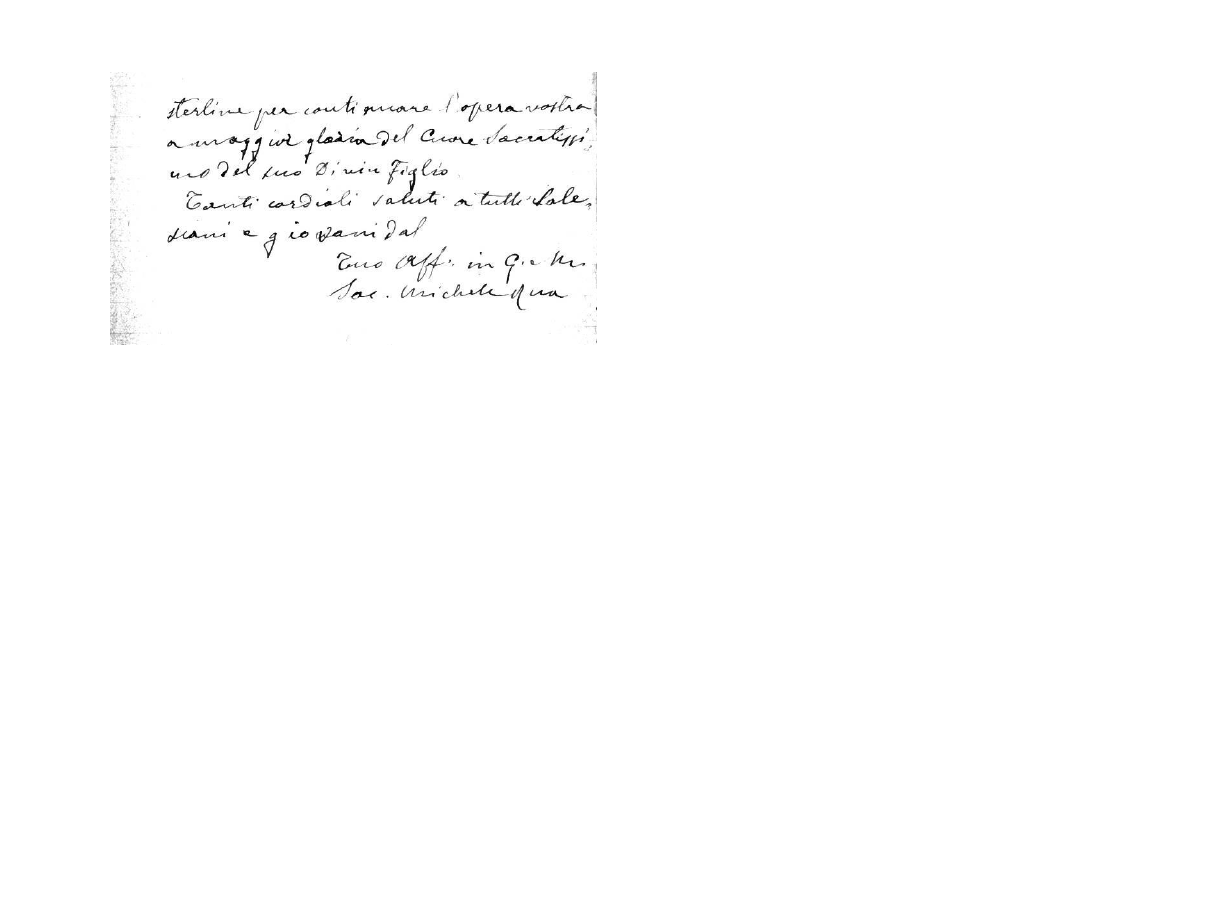 sterline per continuare l'opera vostra
a maggior gloria del Cuore Sacratissi-
mo del suo Divin Figlio
Tanti cordiali saluti a tutti Sale-
siani e giovani dal
Tuo Aff. in G. e M.
Sac. Michele Rua